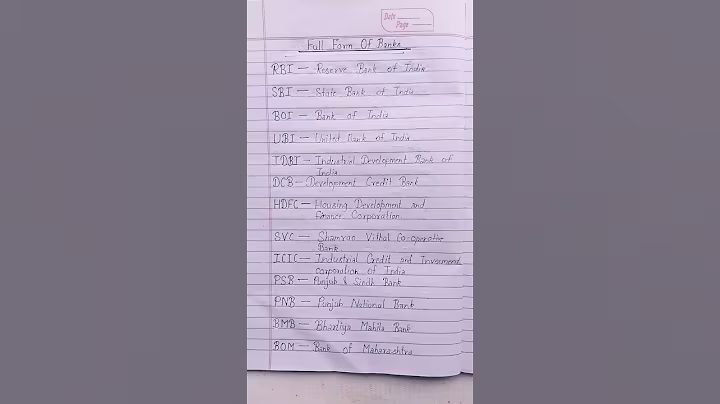 Date
Page
Full Form Of Banks
RBI — Reserve Bank of India
SBI — State Bank of India
BOI — Bank of India
UBI — United Bank of India
IDBI — Industrial Development Bank of
India
DCB — Development Credit Bank
HDFC — Housing Development and
Finance Corporation
SVC — Shamrao Vithal Co-operative
Bank
ICIC — Industrial Credit and Investment
corporation of India
PSB — Punjab & Sindh Bank
PNB — Punjab National Bank
BMB — Bhartiya Mahila Bank
BOM — Bank of Maharashtra